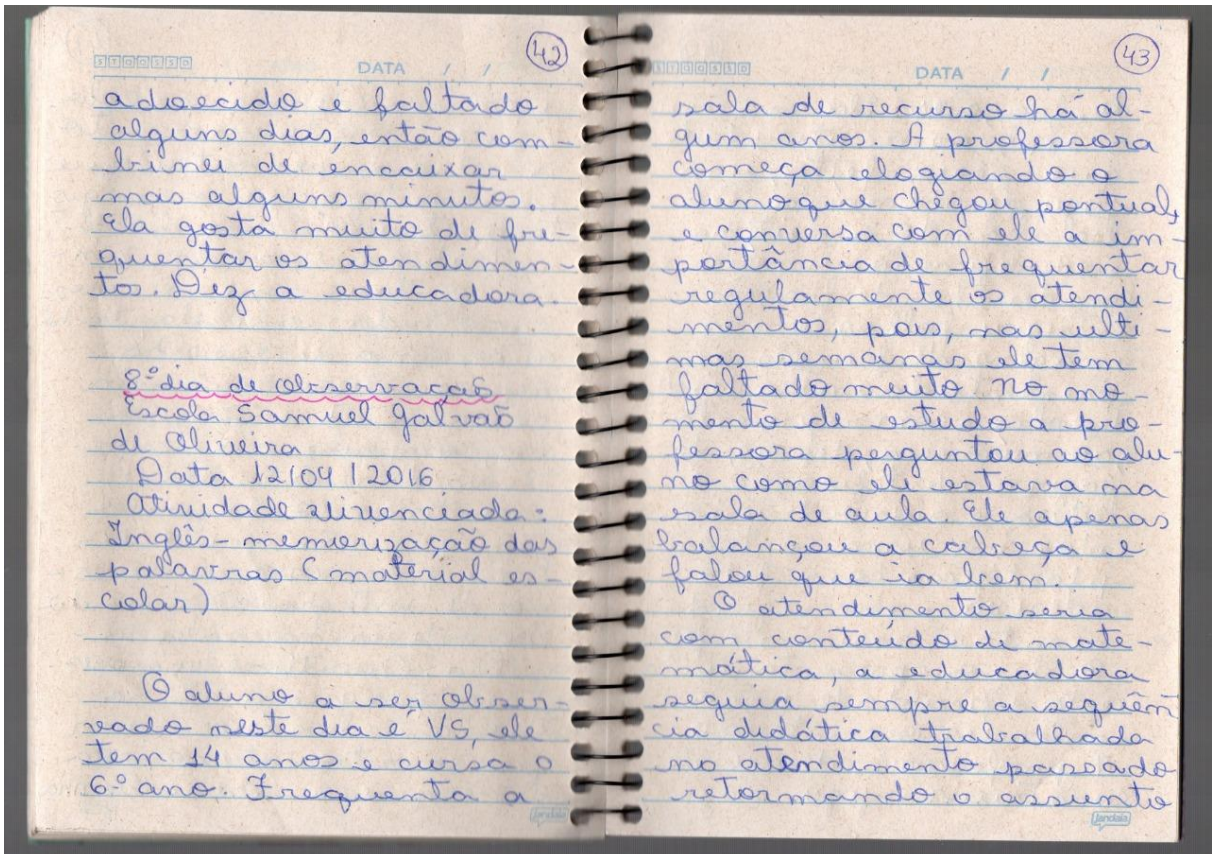 42
S T Q Q S S D
DATA / /
adoecido e faltado
alguns dias, então com-
binei de encaixar
mas alguns minutos.
Ela gosta muito de fre-
quentar os atendimen-
tos. Dez a educadora.
8º dia de observação
Escola Samuel Galvão
de Oliveira
Data 12/04/2016
Atividade vivenciada:
Inglês - memorização das
palavras (material es-
colar)
O aluno a ser obser-
vado neste dia é VS, ele
tem 14 anos e cursa o
6º ano. Frequenta a
jandaia
43
S T Q Q S S D
DATA / /
sala de recurso há al-
gum anos. A professora
começa elogiando o
aluno que chegou pontual,
e conversa com ele a im-
portância de frequentar
regulamente os atendi-
mentos, pois, nas ulti-
mas semanas ele tem
faltado muito. No mo-
mento de estudo a pro-
fessora perguntou ao alu-
no como ele estava na
sala de aula. Ele apenas
balançou a cabeça e
falou que ia bem.
O atendimento seria
com conteúdo de mate-
mática, a educadora
seguia sempre a sequên
cia didática trabalhada
no atendimento passado
retormando o assunto
jandaia